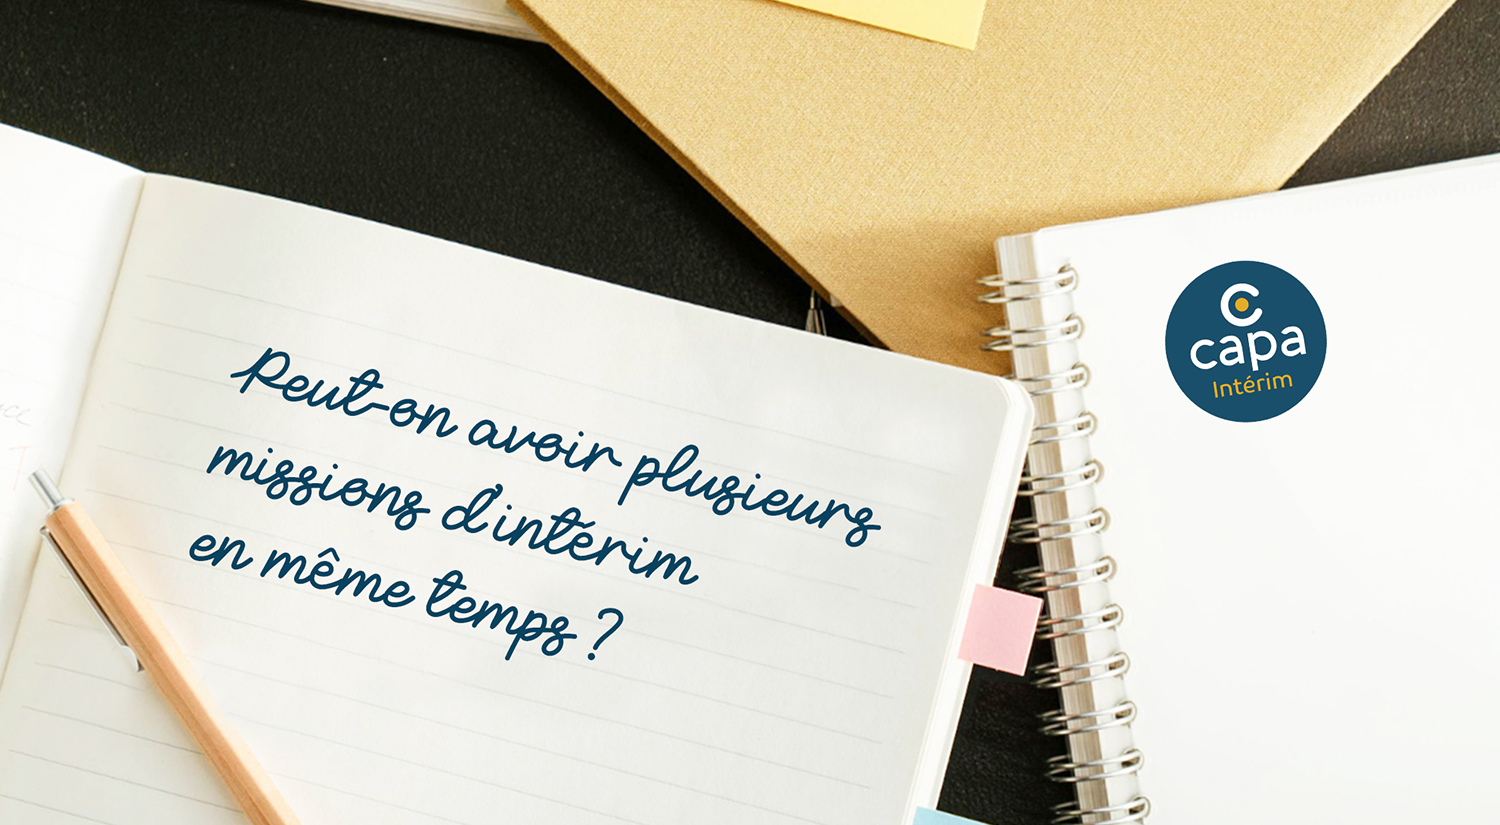 Peut-on avoir plusieurs
missions d'intérim
en même temps ?
capa
Intérim